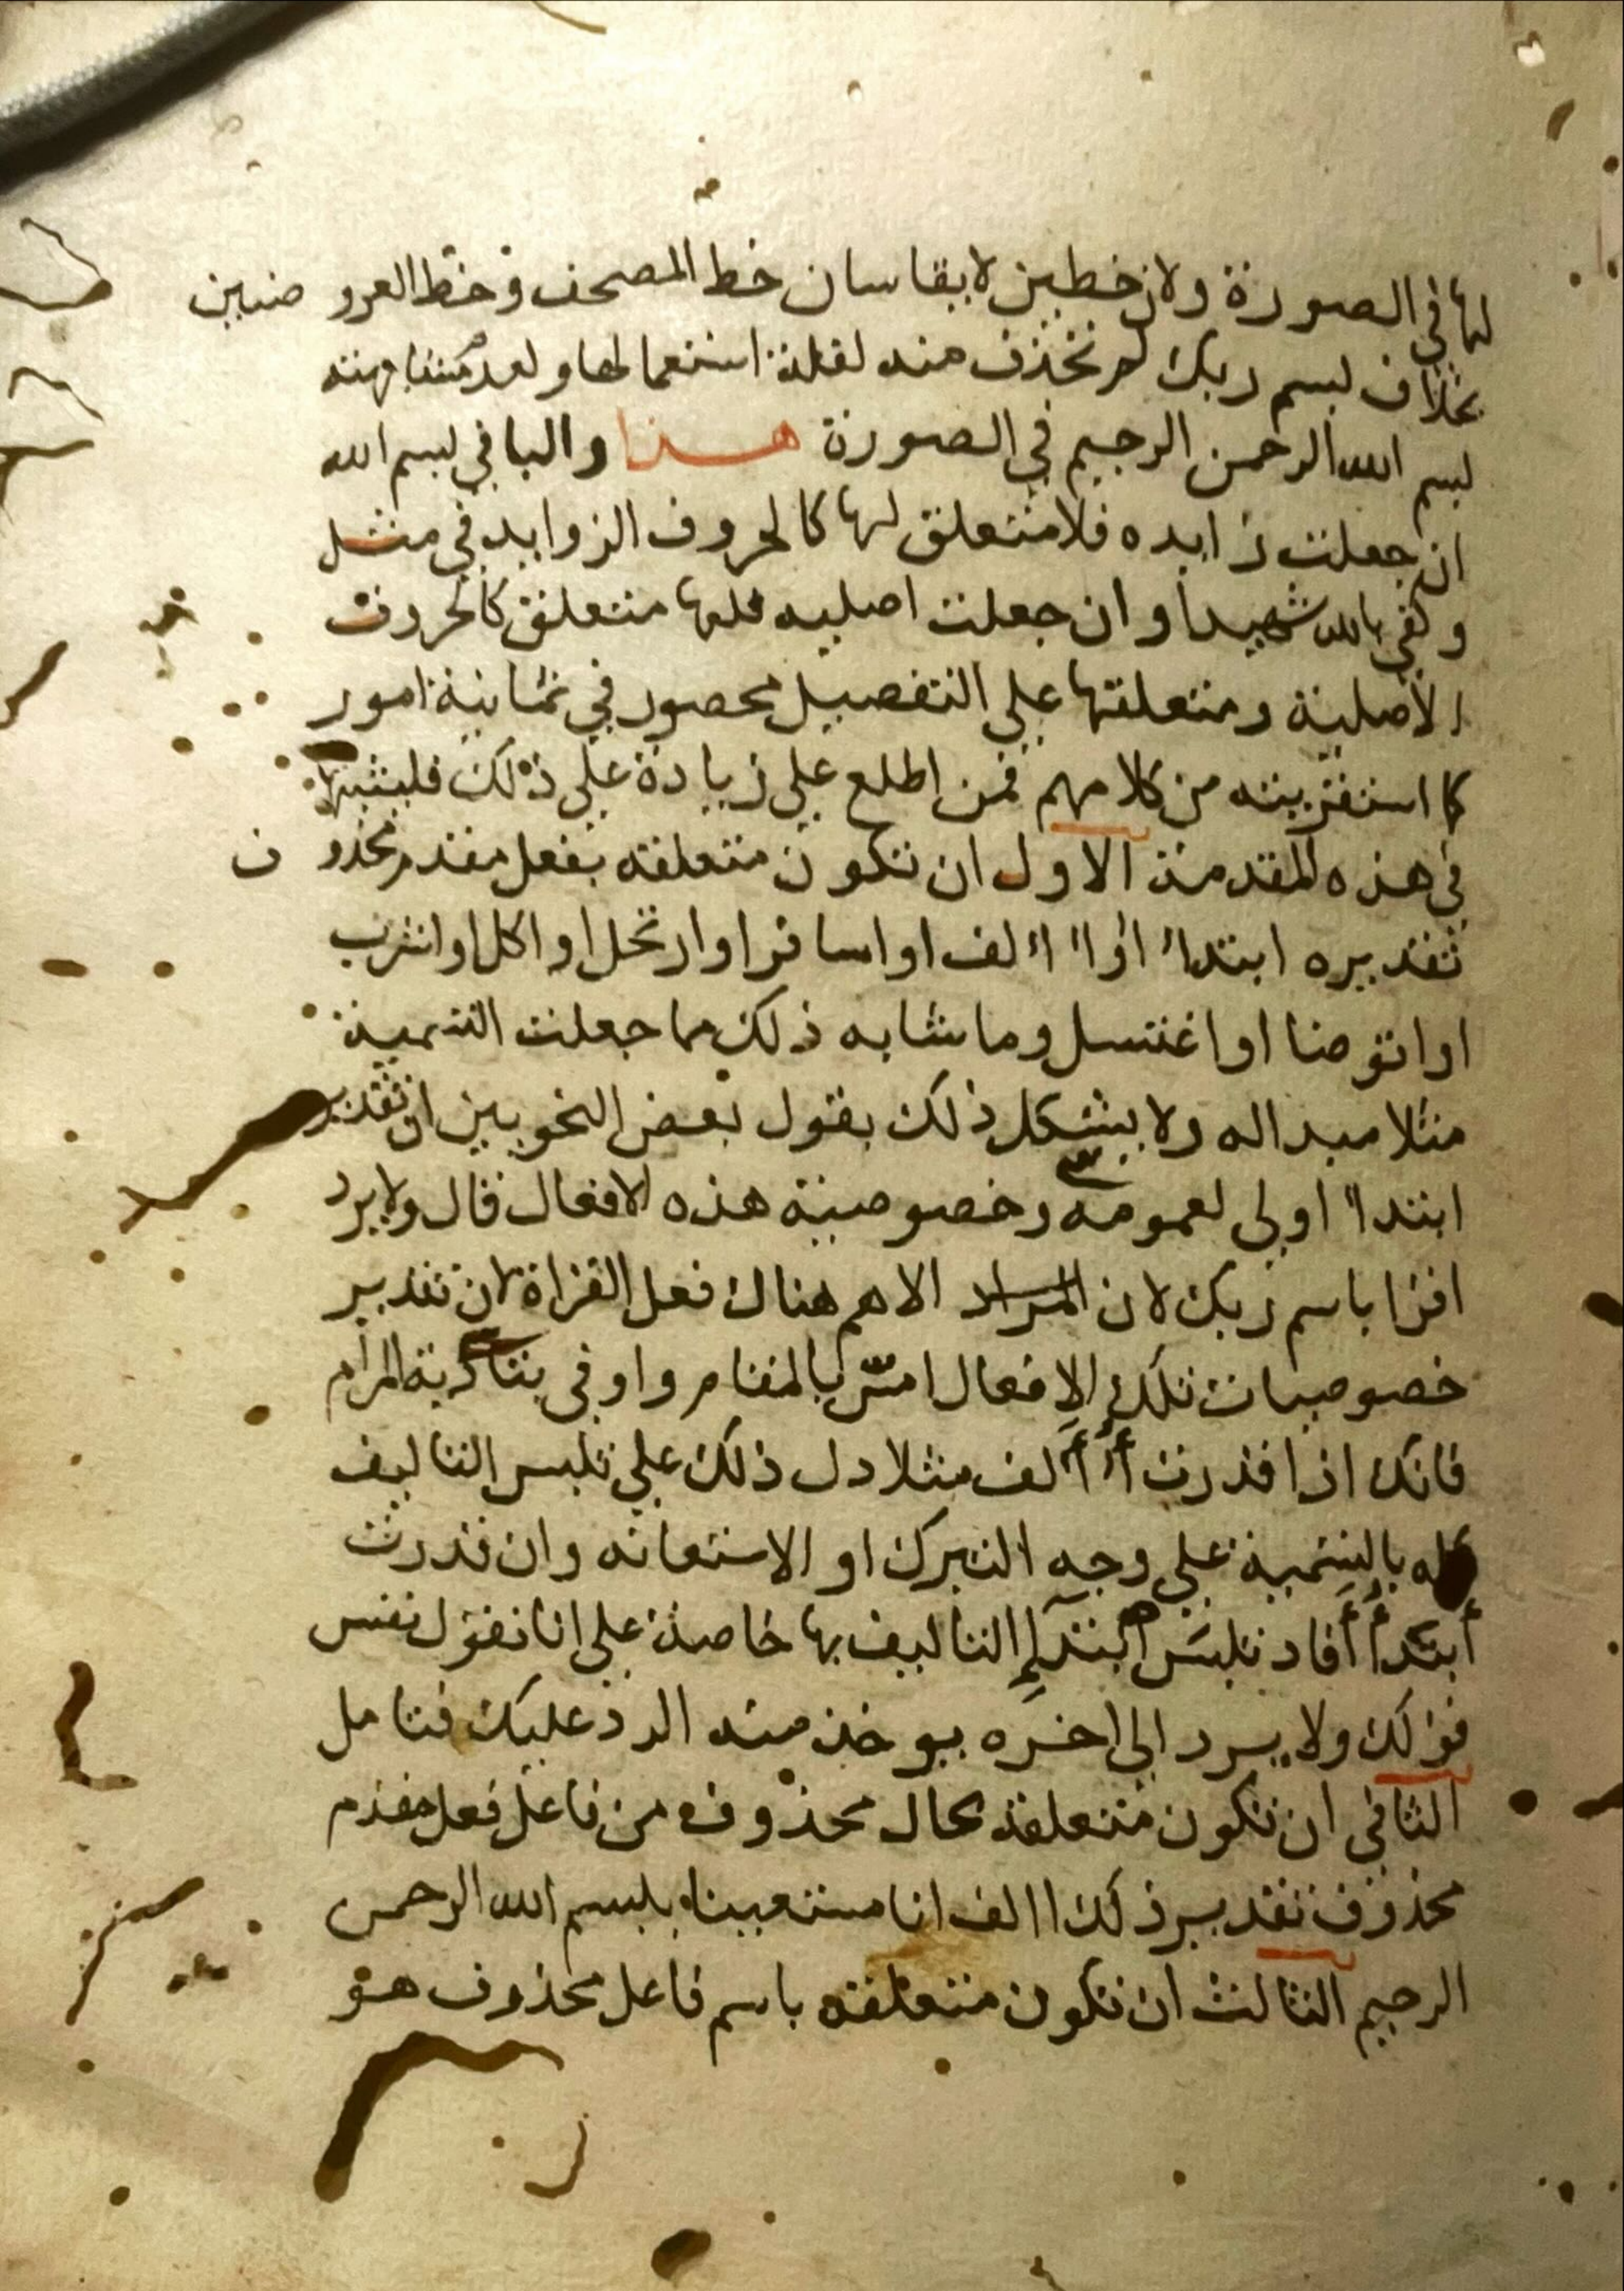 لها في الصورة ولان خطين لا يقاسان خط المصحف وخط العروضيين
بخلاف بسم ربك لم تحذف منه لقلة استعمالها ولعدم مشابهته
لبسم الله الرحمن الرحيم في الصورة هذا والبا في لبسم الله
ان جعلت زايده فلا متعلق لها كالحروف الزوايد في مثل
وكفي بالله شهيدا وان جعلت اصليه فلها متعلق كالحروف
الاصلية ومتعلقها علي التفصيل محصور في ثمانية امور
كما استقريته من كلامهم فمن اطلع علي زيادة علي ذلك فليثبتها
في هذه المقدمة الاول ان تكون متعلقه بفعل مقدم محذوف
تقديره ابتدا او االف او اسافر او ارتحل او اكل او اشرب
او اتوضا او اغتسل وما شابه ذلك مما جعلت التسمية
مثلا مبدا له ولا يشكل ذلك بقول بعض النحويين ان تقدير
ابتدا اولي لعمومه وخصوصية هذه الافعال قال ولا يرد
اقرا باسم ربك لان المراد الاهم هناك فعل القراة لان تقدير
خصوصيات تلك الافعال امس بالمقام واوفي بتادية المرام
فانك اذا قدرت أألف مثلا دل ذلك علي تلبس التاليف
كله بالتسمية علي وجه التبرك او الاستعانه وان قدرت
أبتدأ أفاد تلبس ابتدإ التاليف بها خاصة علي انا نقول نفس
قولك ولا يرد الي اخره يوخذ منه الرد عليك فتامل
الثاني ان تكون متعلقة بحال محذوف من فاعل فعل مقدم
محذوف تقدير ذلك االف انا مستعينا بلبسم الله الرحمن
الرحيم الثالث ان تكون متعلقه باسم فاعل محذوف هو